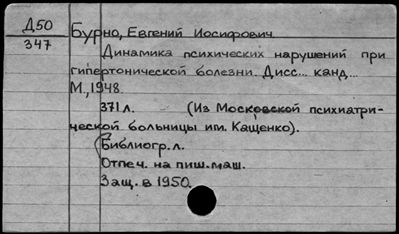 Д50
347
Бурно, Евгений Иосифович.
Динамика психических нарушений при
гипертонической болезни. Дисс... канд...
М., 1948.
371 л. (Из Московской психиатри-
ческой больницы им. Кащенко).
Библиогр. л.
Отпеч. на пиш. маш.
Защ. в 1950.